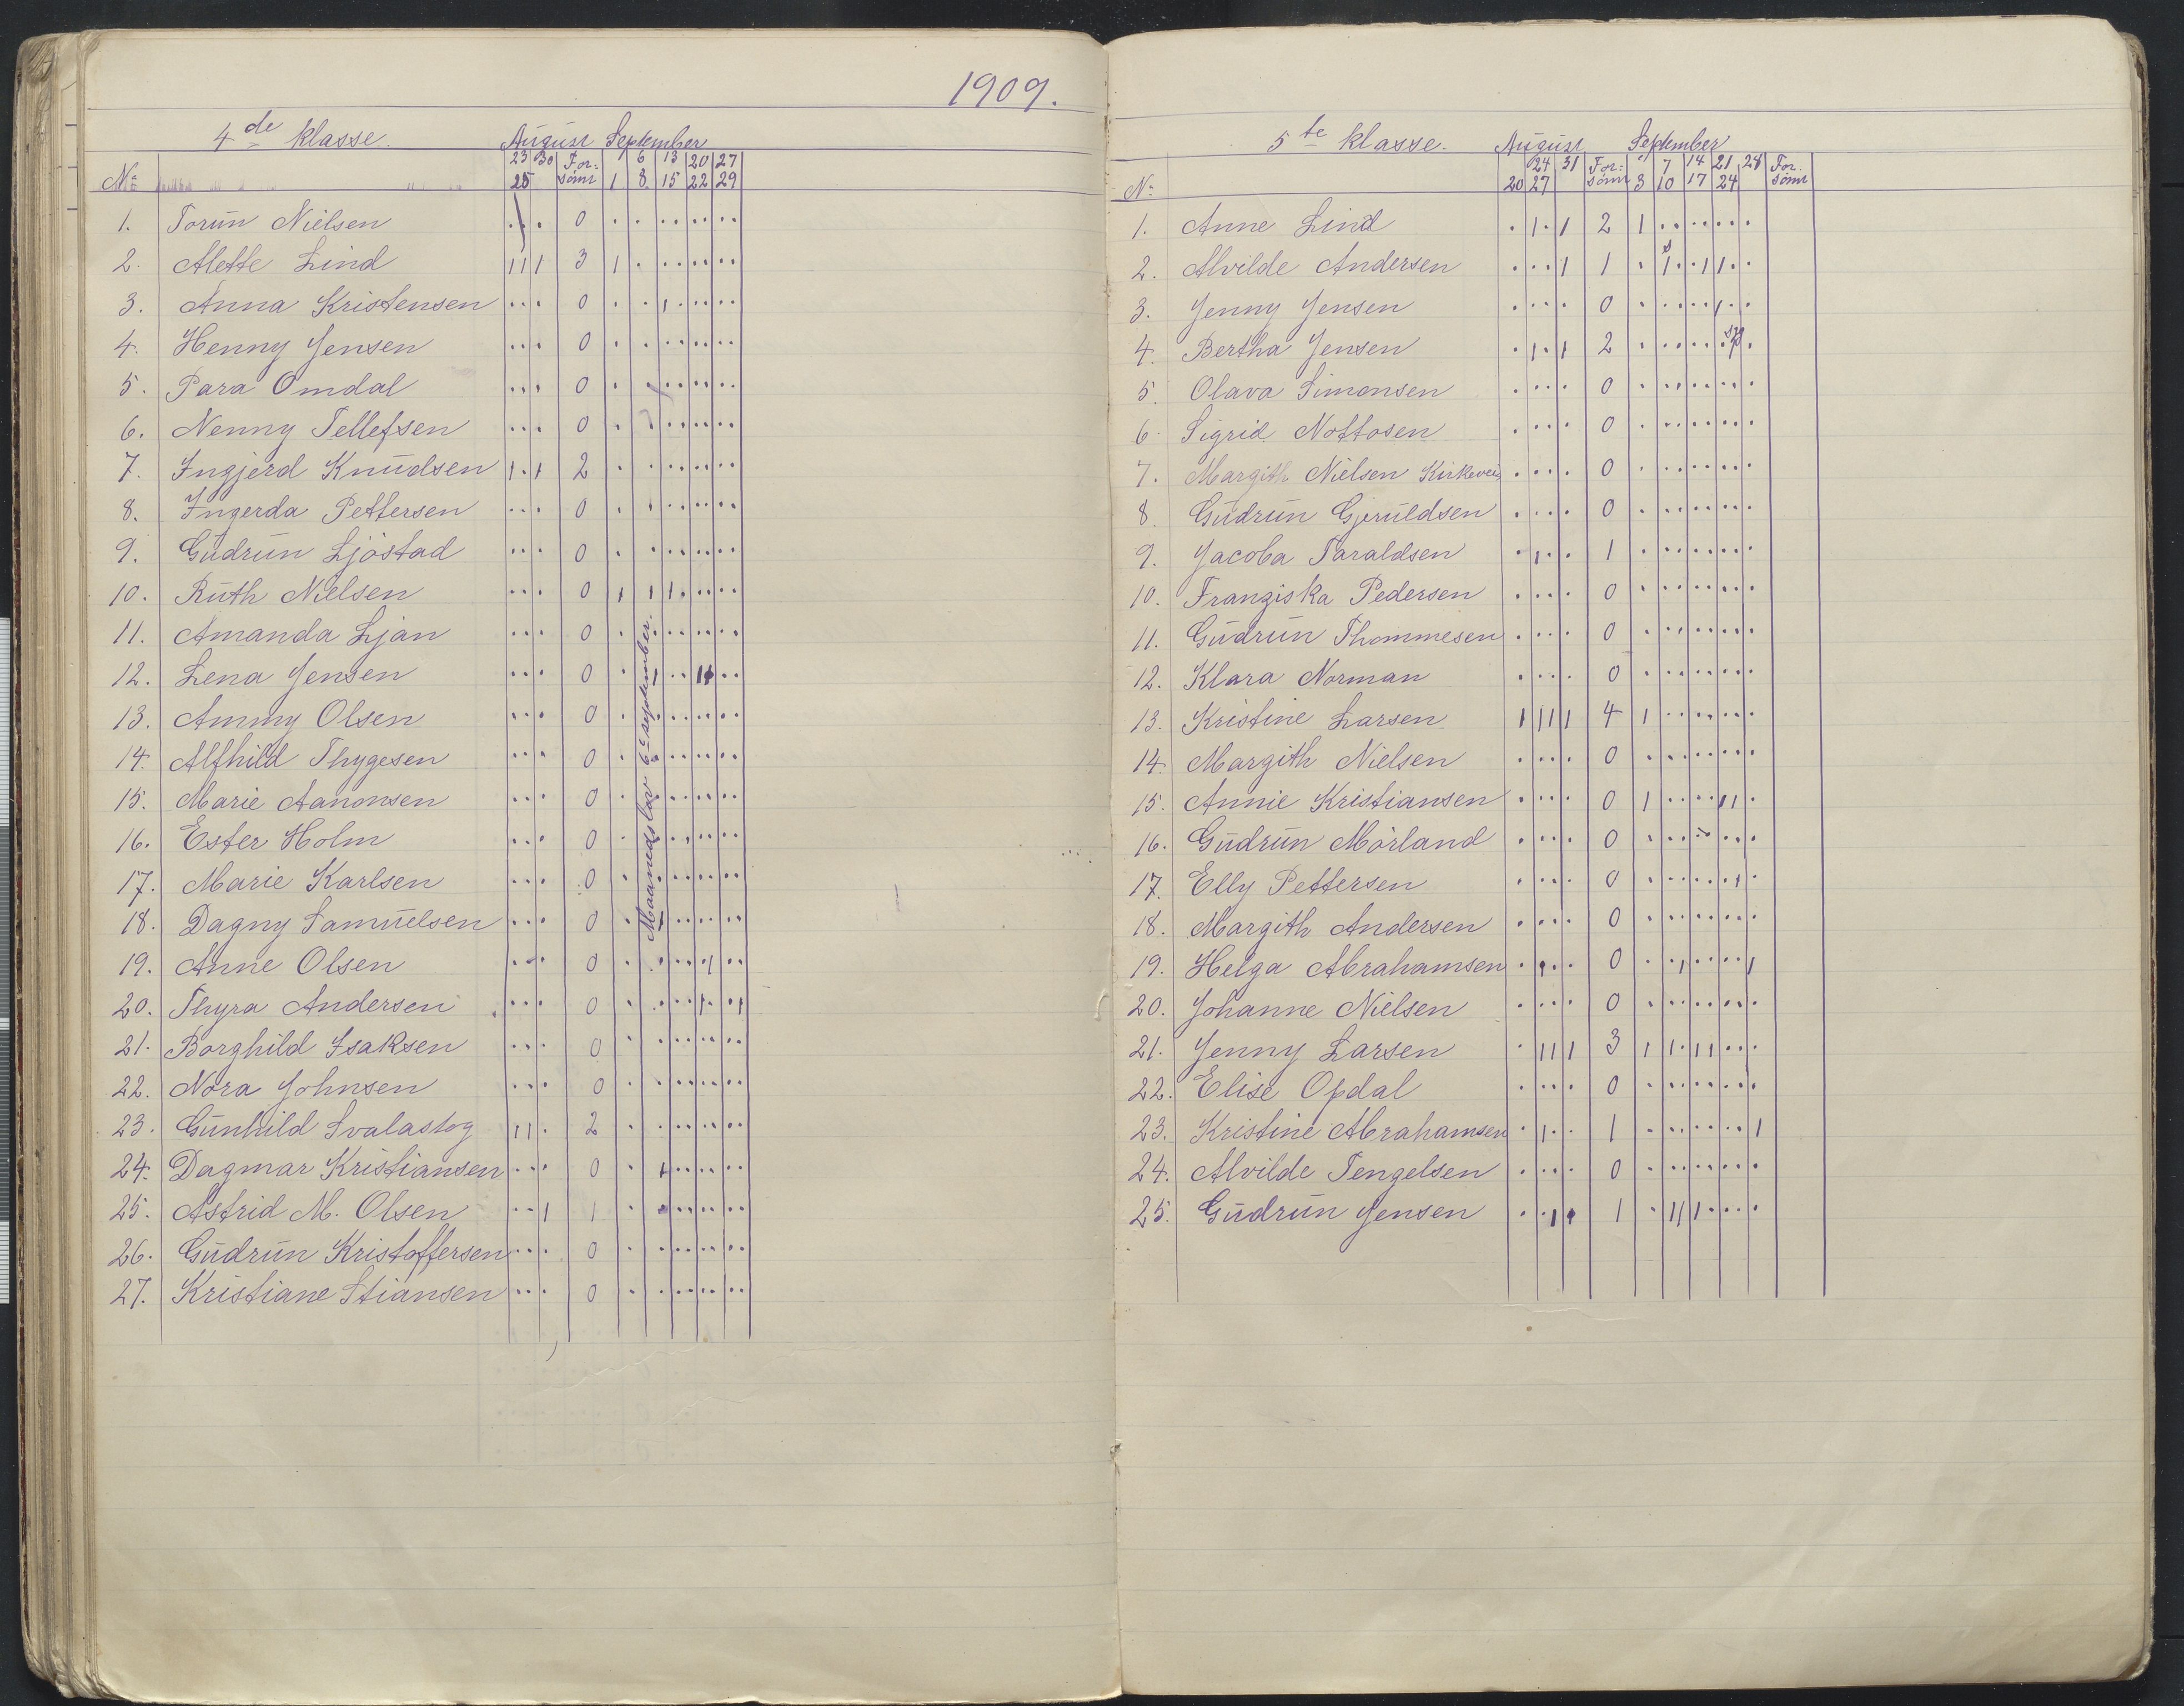 1909.
4de klasse. August September
No 23 30 For- 1 6 13 20 27
25 sömt 1 8 15 22 29
1. Torun Nielsen 0
2. Alette Lind 3
3. Anna Kristensen 0
4. Henny Jensen 0
5. Para Omdal 0
6. Nenny Tellefsen 0
7. Ingjerd Knudsen 2
8. Ingerda Pettersen 0
9. Gudrun Ljöstad 0
10. Ruth Nielsen 0
11. Amanda Ljan 0
12. Lena Jensen 0
13. Ammy Olsen 0
14. Alfhild Thygesen 0
15. Marie Aanonsen 0
16. Ester Holm 0
17. Marie Karlsen 0
18. Dagny Samuelsen 0
19. Anne Olsen 0
20. Thyra Andersen 0
21. Borghild Isaksen 0
22. Nora Johnsen 0
23. Gunhild Svalastog 2
24. Dagmar Kristiansen 0
25. Astrid M. Olsen 1
26. Gudrun Kristoffersen 0
27. Kristiane Stiansen 0
Maanedslov 6te september.
5te klasse. August September
24 31 For- 7 14 21 28 For-
No 20 27 sömt 3 10 17 24 sömt
1. Anne Lind 2
2. Alvilde Andersen 1
3. Jenny Jensen 0
4. Bertha Jensen 2
5. Olava Simonsen 0
6. Sigrid Nottosen 0
7. Margith Nielsen Kirkevei 0
8. Gudrun Gjeruldsen 0
9. Jacoba Taraldsen 1
10. Franziska Pedersen 0
11. Gudrun Thommesen 0
12. Klara Norman 0
13. Kristine Larsen 4
14. Margith Nielsen 0
15. Annie Kristiansen 0
16. Gudrun Mörland 0
17. Elly Pettersen 0
18. Margith Andersen 0
19. Helga Abrahamsen 0
20. Johanne Nielsen 0
21. Jenny Larsen 3
22. Elise Opdal 0
23. Kristine Abrahamsen 1
24. Alvilde Tengelsen 0
25. Gudrun Jensen 1